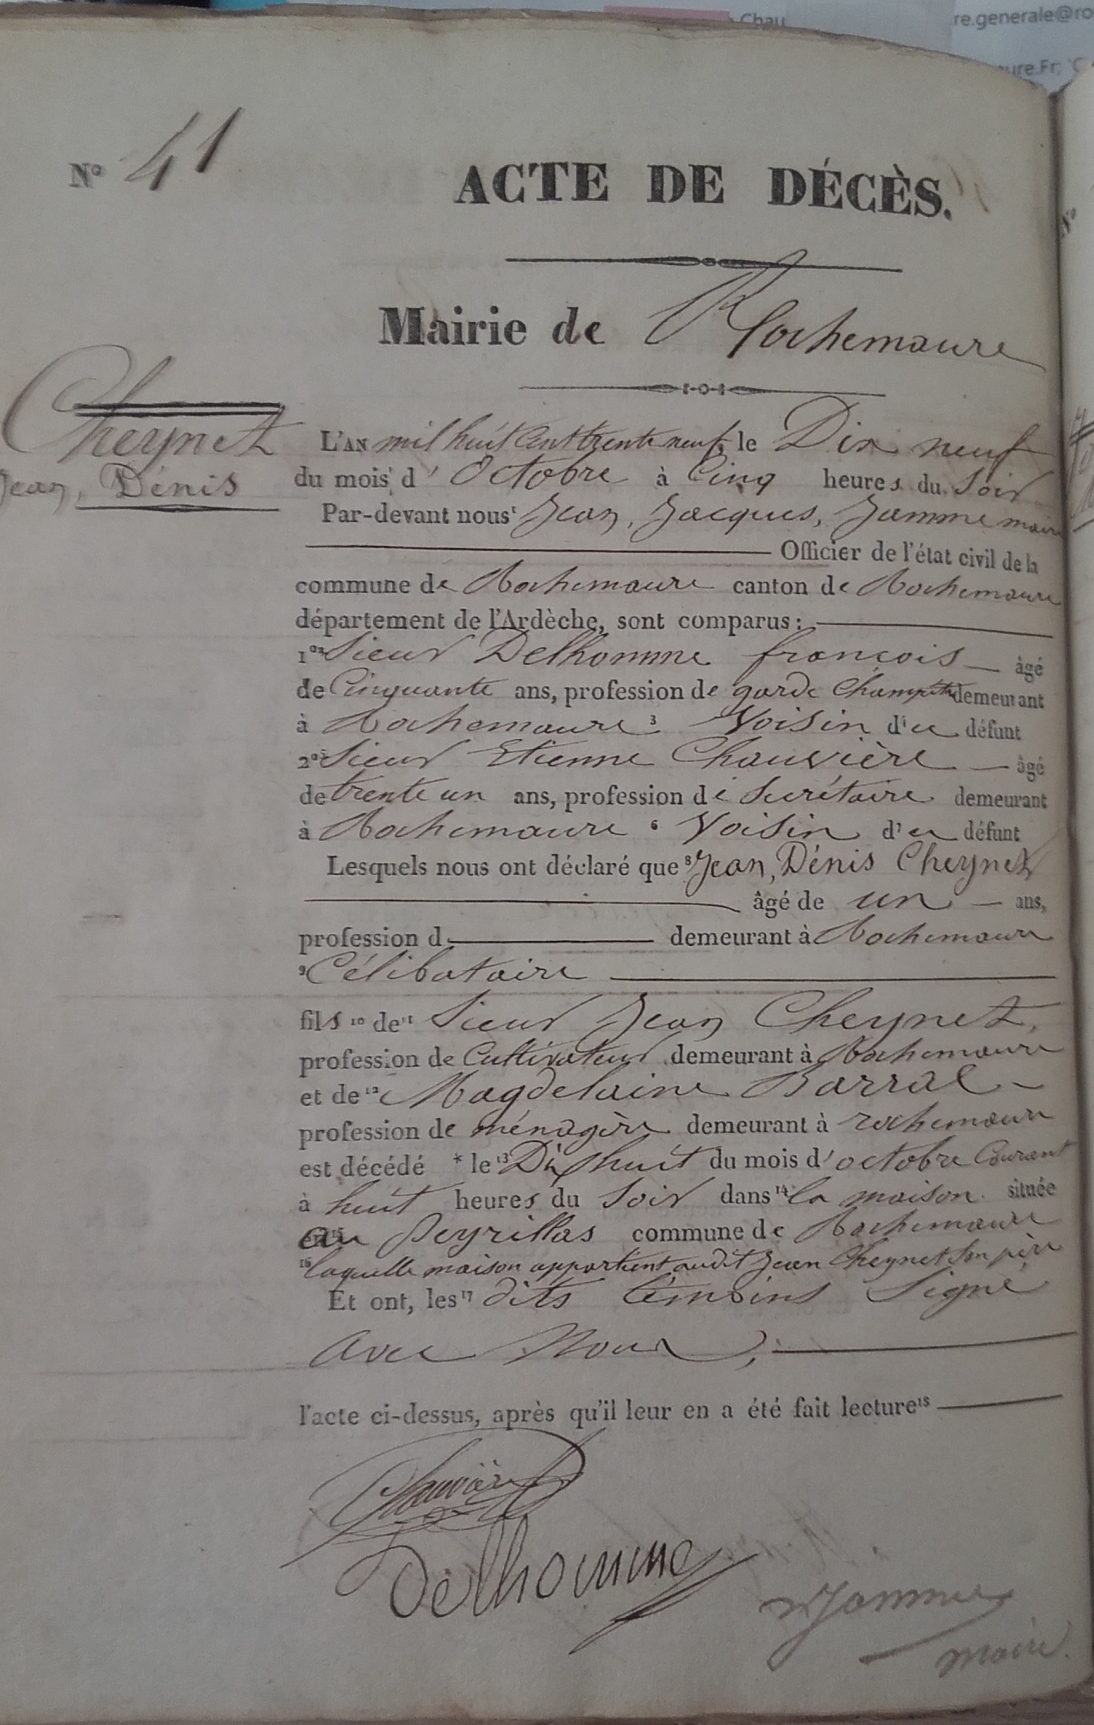 Chau
re.generale@ro
ure.Fr
N° 41
ACTE DE DÉCÈS.
Mairie de Rochemaure
Cheynet
Jean, Dénis
L'AN mil huit cent trente neuf, le Dix neuf
du mois d' Octobre à Cinq heures du Soir
Par-devant nous¹ Jean, Jacques, Jamme maire
Officier de l'état civil de la
commune de Rochemaure canton de Rochemaure
département de l'Ardèche, sont comparus :
1° ² Sieur Delhomme françois âgé
de Cinquante ans, profession de garde Champêtre demeurant
à Rochemaure ³ Voisin du défunt
2° ⁵ Sieur Etienne Chauvière âgé
de trente un ans, profession de Secrétaire demeurant
à Rochemaure ⁶ Voisin du défunt
Lesquels nous ont déclaré que ⁸ Jean, Dénis Cheynet
âgé de un ans,
profession d demeurant à Rochemaure
⁹ Célibataire
fils ¹⁰ de ¹¹ Sieur Jean Cheynet,
profession de Cultivateur demeurant à Rochemaure
et de ¹² Magdelaine Barral
profession de ménagère demeurant à rochemaure
est décédé * le ¹³ Dix huit du mois d' octobre Courant
à huit heures du Soir dans ¹⁴ la maison située
au Peyrillas commune de Rochemaure
¹⁶ laquelle maison appartient audit Jean Cheynet Son père
Et ont, les ¹⁷ dits témoins Signé
avec Nous,
l'acte ci-dessus, après qu'il leur en a été fait lecture ¹⁸
Chauvière
Delhomme
Jamme
maire.